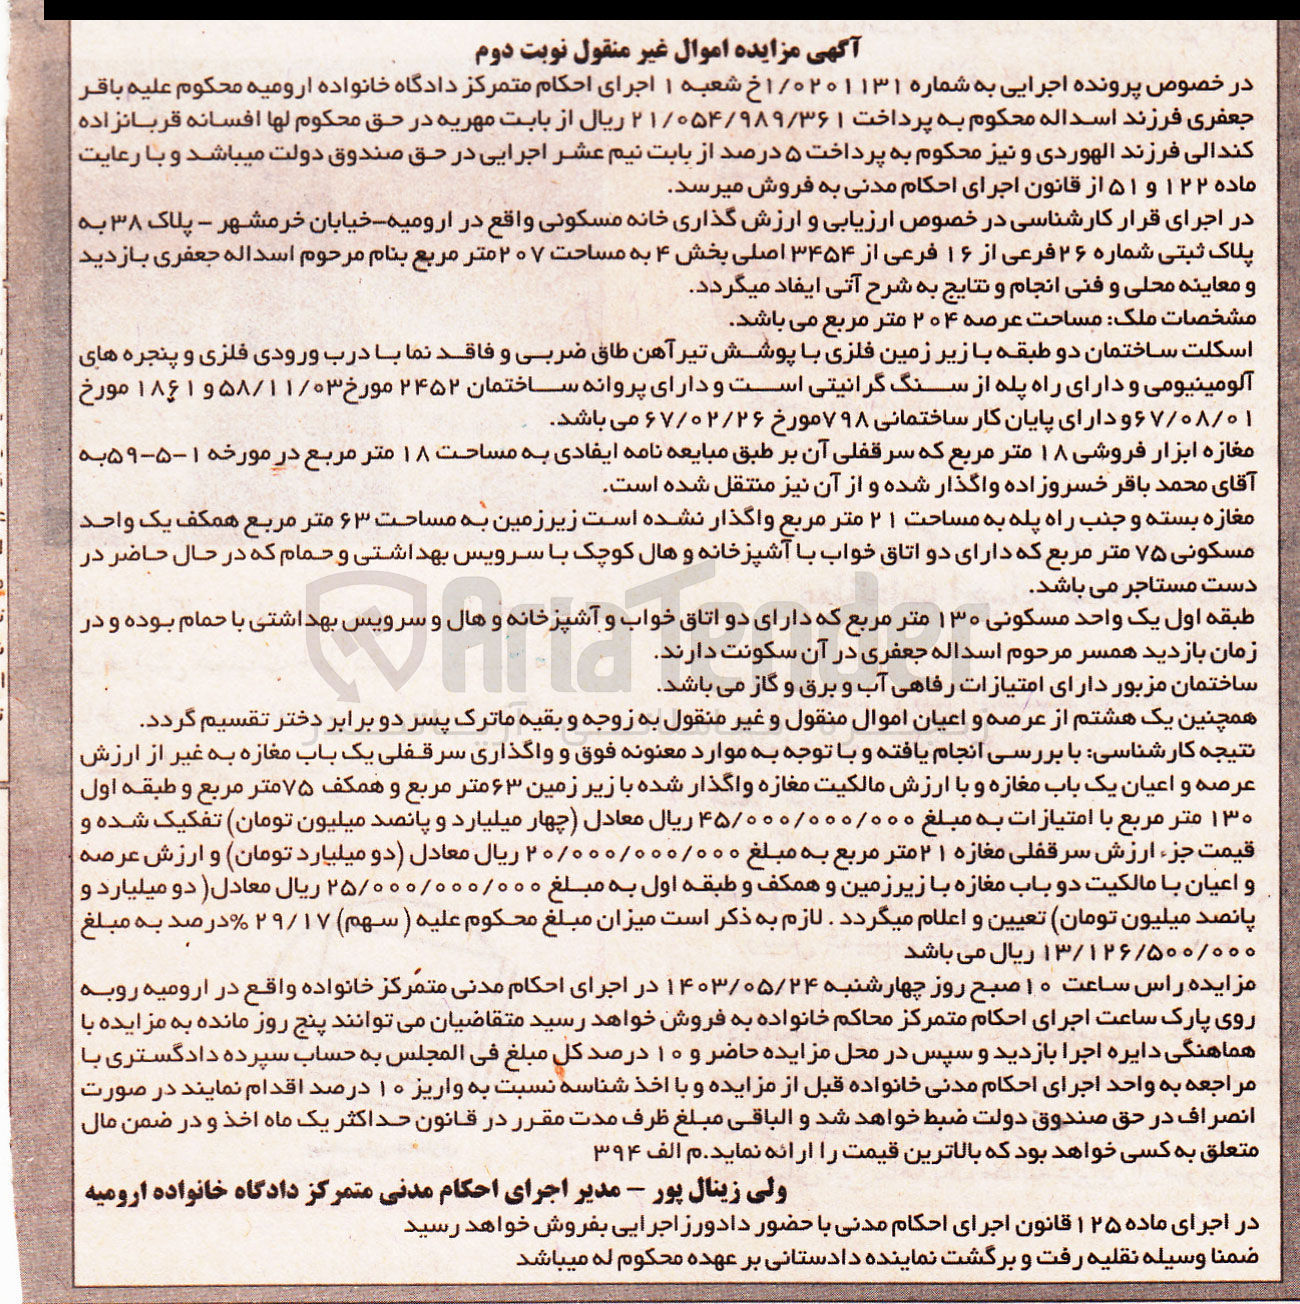 آگهی مزایده اموال غیر منقول نوبت دوم
در خصوص پرونده اجرایی به شماره ۱/۰۲۰۱۱۳۱خ شعبه ۱ اجرای احکام متمرکز دادگاه خانواده ارومیه محکوم علیه باقر
جعفری فرزند اسداله محکوم به پرداخت ۲۱/۰۵۴/۹۸۹/۳۶۱ ریال از بابت مهریه در حق محکوم لها افسانه قربانزاده
کندالی فرزند الهوردی و نیز محکوم به پرداخت ۵درصد از بابت نیم عشر اجرایی در حق صندوق دولت میباشد و با رعایت
ماده ۱۲۲ و ۵۱ از قانون اجرای احکام مدنی به فروش میرسد.
در اجرای قرار کارشناسی در خصوص ارزیابی و ارزش گذاری خانه مسکونی واقع در ارومیه–خیابان خرمشهر – پلاک ۳۸ به
پلاک ثبتی شماره ۲۶فرعی از ۱۶ فرعی از ۳۴۵۴ اصلی بخش ۴ به مساحت ۲۰۷متر مربع بنام مرحوم اسداله جعفری بازدید
و معاینه محلی و فنی انجام و نتایج به شرح آتی ایفاد میگردد.
مشخصات ملک: مساحت عرصه ۲۰۴ متر مربع می باشد.
اسکلت ساختمان دو طبقه با زیر زمین فلزی با پوشش تیرآهن طاق ضربی و فاقد نما با درب ورودی فلزی و پنجره های
آلومینیومی و دارای راه پله از سنگ گرانیتی است و دارای پروانه ساختمان ۲۴۵۲ مورخ۵۸/۱۱/۰۳ و ۱۸۶۱ مورخ
۶۷/۰۸/۰۱و دارای پایان کار ساختمانی ۷۹۸مورخ ۶۷/۰۲/۲۶ می باشد.
مغازه ابزار فروشی ۱۸ متر مربع که سرقفلی آن بر طبق مبایعه نامه ایفادی به مساحت ۱۸ متر مربع در مورخه ۱-۵-۵۹به
آقای محمد باقر خسروزاده واگذار شده و از آن نیز منتقل شده است.
مغازه بسته و جنب راه پله به مساحت ۲۱ متر مربع واگذار نشده است زیرزمین به مساحت ۶۳ متر مربع همکف یک واحد
مسکونی ۷۵ متر مربع که دارای دو اتاق خواب با آشپزخانه و هال کوچک با سرویس بهداشتی و حمام که در حال حاضر در
دست مستاجر می باشد.
طبقه اول یک واحد مسکونی ۱۳۰ متر مربع که دارای دو اتاق خواب و آشپزخانه و هال و سرویس بهداشتی با حمام بوده و در
زمان بازدید همسر مرحوم اسداله جعفری در آن سکونت دارند.
ساختمان مزبور دارای امتیازات رفاهی آب و برق و گاز می باشد.
همچنین یک هشتم از عرصه و اعیان اموال منقول و غیر منقول به زوجه و بقیه ماترک پسر دو برابر دختر تقسیم گردد.
نتیجه کارشناسی: با بررسی انجام یافته و با توجه به موارد معنونه فوق و واگذاری سرقفلی یک باب مغازه به غیر از ارزش
عرصه و اعیان یک باب مغازه و با ارزش مالکیت مغازه واگذار شده با زیر زمین ۶۳متر مربع و همکف ۷۵متر مربع و طبقه اول
۱۳۰ متر مربع با امتیازات به مبلغ ۴۵/۰۰۰/۰۰۰/۰۰۰ ریال معادل (چهار میلیارد و پانصد میلیون تومان) تفکیک شده و
قیمت جزء ارزش سرقفلی مغازه ۲۱متر مربع به مبلغ ۲۰/۰۰۰/۰۰۰/۰۰۰ ریال معادل (دو میلیارد تومان) و ارزش عرصه
و اعیان با مالکیت دو باب مغازه با زیرزمین و همکف و طبقه اول به مبلغ ۲۵/۰۰۰/۰۰۰/۰۰۰ ریال معادل( دو میلیارد و
پانصد میلیون تومان) تعیین و اعلام میگردد . لازم به ذکر است میزان مبلغ محکوم علیه ( سهم) ۲۹/۱۷ %درصد به مبلغ
۱۳/۱۲۶/۵۰۰/۰۰۰ ریال می باشد
مزایده راس ساعت ۱۰صبح روز چهارشنبه ۱۴۰۳/۰۵/۲۴ در اجرای احکام مدنی متمرکز خانواده واقع در ارومیه روبه
روی پارک ساعت اجرای احکام متمرکز محاکم خانواده به فروش خواهد رسید متقاضیان می توانند پنج روز مانده به مزایده با
هماهنگی دایره اجرا بازدید و سپس در محل مزایده حاضر و ۱۰ درصد کل مبلغ فی المجلس به حساب سپرده دادگستری با
مراجعه به واحد اجرای احکام مدنی خانواده قبل از مزایده و با اخذ شناسه نسبت به واریز ۱۰ درصد اقدام نمایند در صورت
انصراف در حق صندوق دولت ضبط خواهد شد و الباقی مبلغ ظرف مدت مقرر در قانون حداکثر یک ماه اخذ و در ضمن مال
متعلق به کسی خواهد بود که بالاترین قیمت را ارائه نماید.م الف ۳۹۴
ولی زینال پور – مدیر اجرای احکام مدنی متمرکز دادگاه خانواده ارومیه
در اجرای ماده ۱۲۵قانون اجرای احکام مدنی با حضور دادورز اجرایی بفروش خواهد رسید
ضمنا وسیله نقلیه رفت و برگشت نماینده دادستانی بر عهده محکوم له میباشد
AriaTender